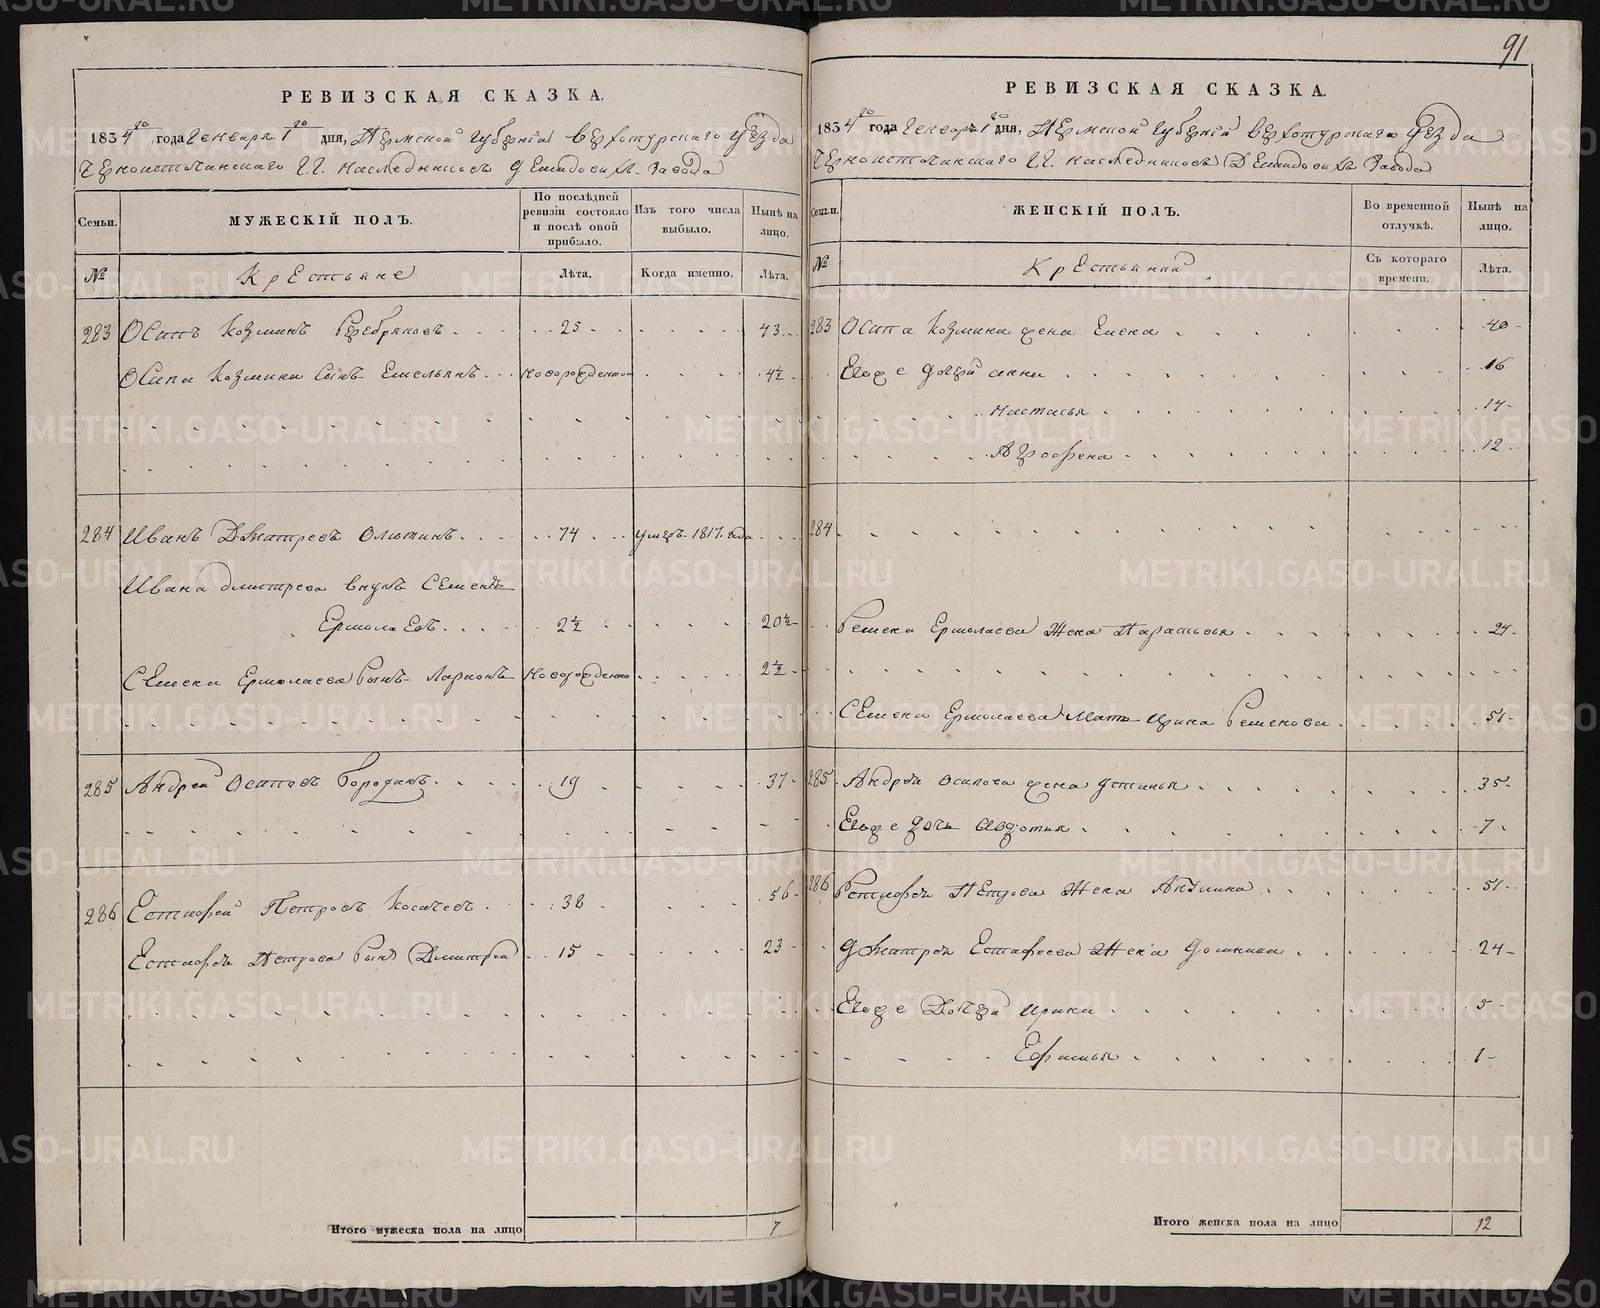 91
РЕВИЗСКАЯ СКАЗКА.
1834го года Генваря 1го дня, Пермской Губернiи Верхотурскаго Уезда
Черноисточинскаго Г.Г. Наследниковъ Демидовыхъ Завода
Семьи.
МУЖЕСКІЙ ПОЛЪ.
По послѣдней ревизіи состояло и послѣ оной прибыло.
Изъ того числа выбыло.
Нынѣ на лицо.
№
Крестьяне
Лѣта.
Когда именно.
Лѣта.
283 Осипъ Козминъ Серебряковъ 25 43
Осипа Козмина Сынъ Емельянъ новорожденной 4½
284 Иванъ Дмитревъ Олютинъ 74 умеръ 1817 года
Ивана дмитрева внукъ Семенъ
Ермолаевъ 2½ 20½
Семена Ермолаева Сынъ Ларионъ Новорожденно 2½
285 Андрей Осиповъ Бородинъ 19 37
286 Естифей Петровъ Косачев 38 56
Естифея Петрова Сынъ Дмитрей 15 23
Итого мужеска пола на лицо 7
РЕВИЗСКАЯ СКАЗКА.
1834го года Генваря 1го дня, Пермской Губернiй Верхотурскаго Уезда
Черноисточинскаго Г.Г. Наследниковъ Демидовыхъ Завода
Семьи.
ЖЕНСКІЙ ПОЛЪ.
Во временной отлучкѣ.
Нынѣ на лицо.
№
Крестьянки
Съ котораго времени.
Лѣта.
283 Осипа Козмина жена Елена 40
Еиоже Дочери анна 16
Настасья 14
Агрофена 12
284
Семена Ермолаева Жена Парасковья 24
Семена Ермолаева Мать Ирина Семенова 51
285 Андрея Осипова жена Устинья 35
Еиоже Дочь Авдотья 7
286 Естифея Петрова Жена Акилина 51
Дмитрея Естафеева Жена Домнина 24
Еиоже Дочери Ирина 5
Ефимья 1
Итого женска пола на лицо 12
METRIKI.GASO-URAL.RU